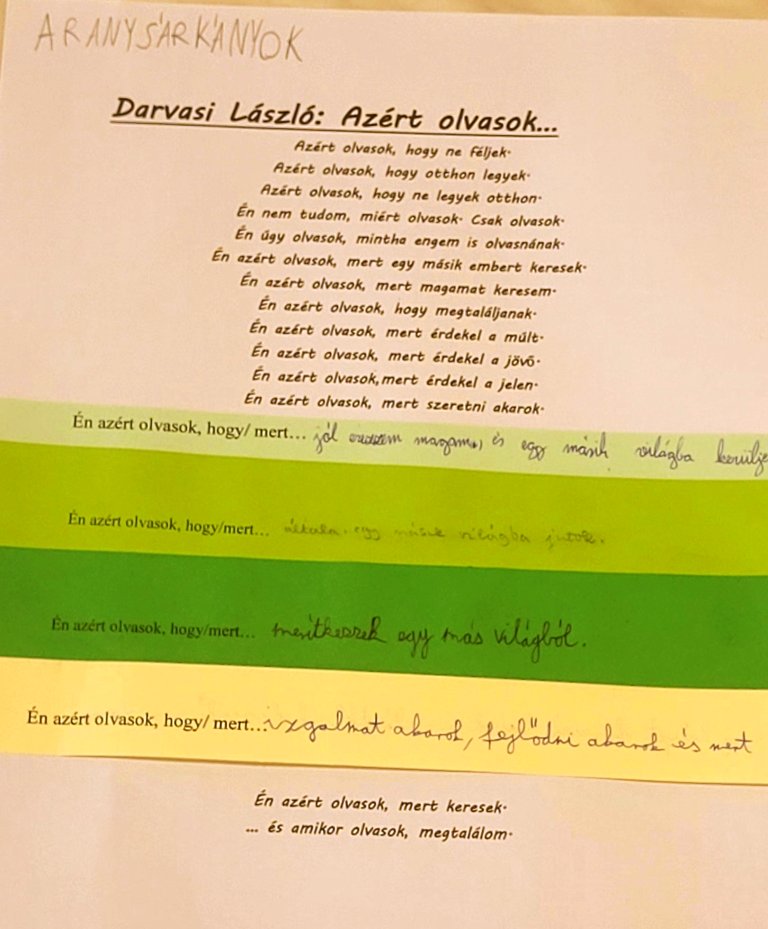 ARANYSÁRKÁNYOK
Darvasi László: Azért olvasok...
Azért olvasok, hogy ne féljek.
Azért olvasok, hogy otthon legyek.
Azért olvasok, hogy ne legyek otthon.
Én nem tudom, miért olvasok. Csak olvasok.
Én úgy olvasok, mintha engem is olvasnának.
Én azért olvasok, mert egy másik embert keresek.
Én azért olvasok, mert magamat keresem.
Én azért olvasok, hogy megtaláljanak.
Én azért olvasok, mert érdekel a múlt.
Én azért olvasok, mert érdekel a jövő.
Én azért olvasok,mert érdekel a jelen.
Én azért olvasok, mert szeretni akarok.
Én azért olvasok, hogy/ mert... jól érezzem magam, és egy másik világba kerülje
Én azért olvasok, hogy/mert... általa egy másik világba jutok.
Én azért olvasok, hogy/mert... merítkezek egy más világból.
Én azért olvasok, hogy/ mert... izgalmat akarok, fejlődni akarok és mert
Én azért olvasok, mert keresek.
... és amikor olvasok, megtalálom.